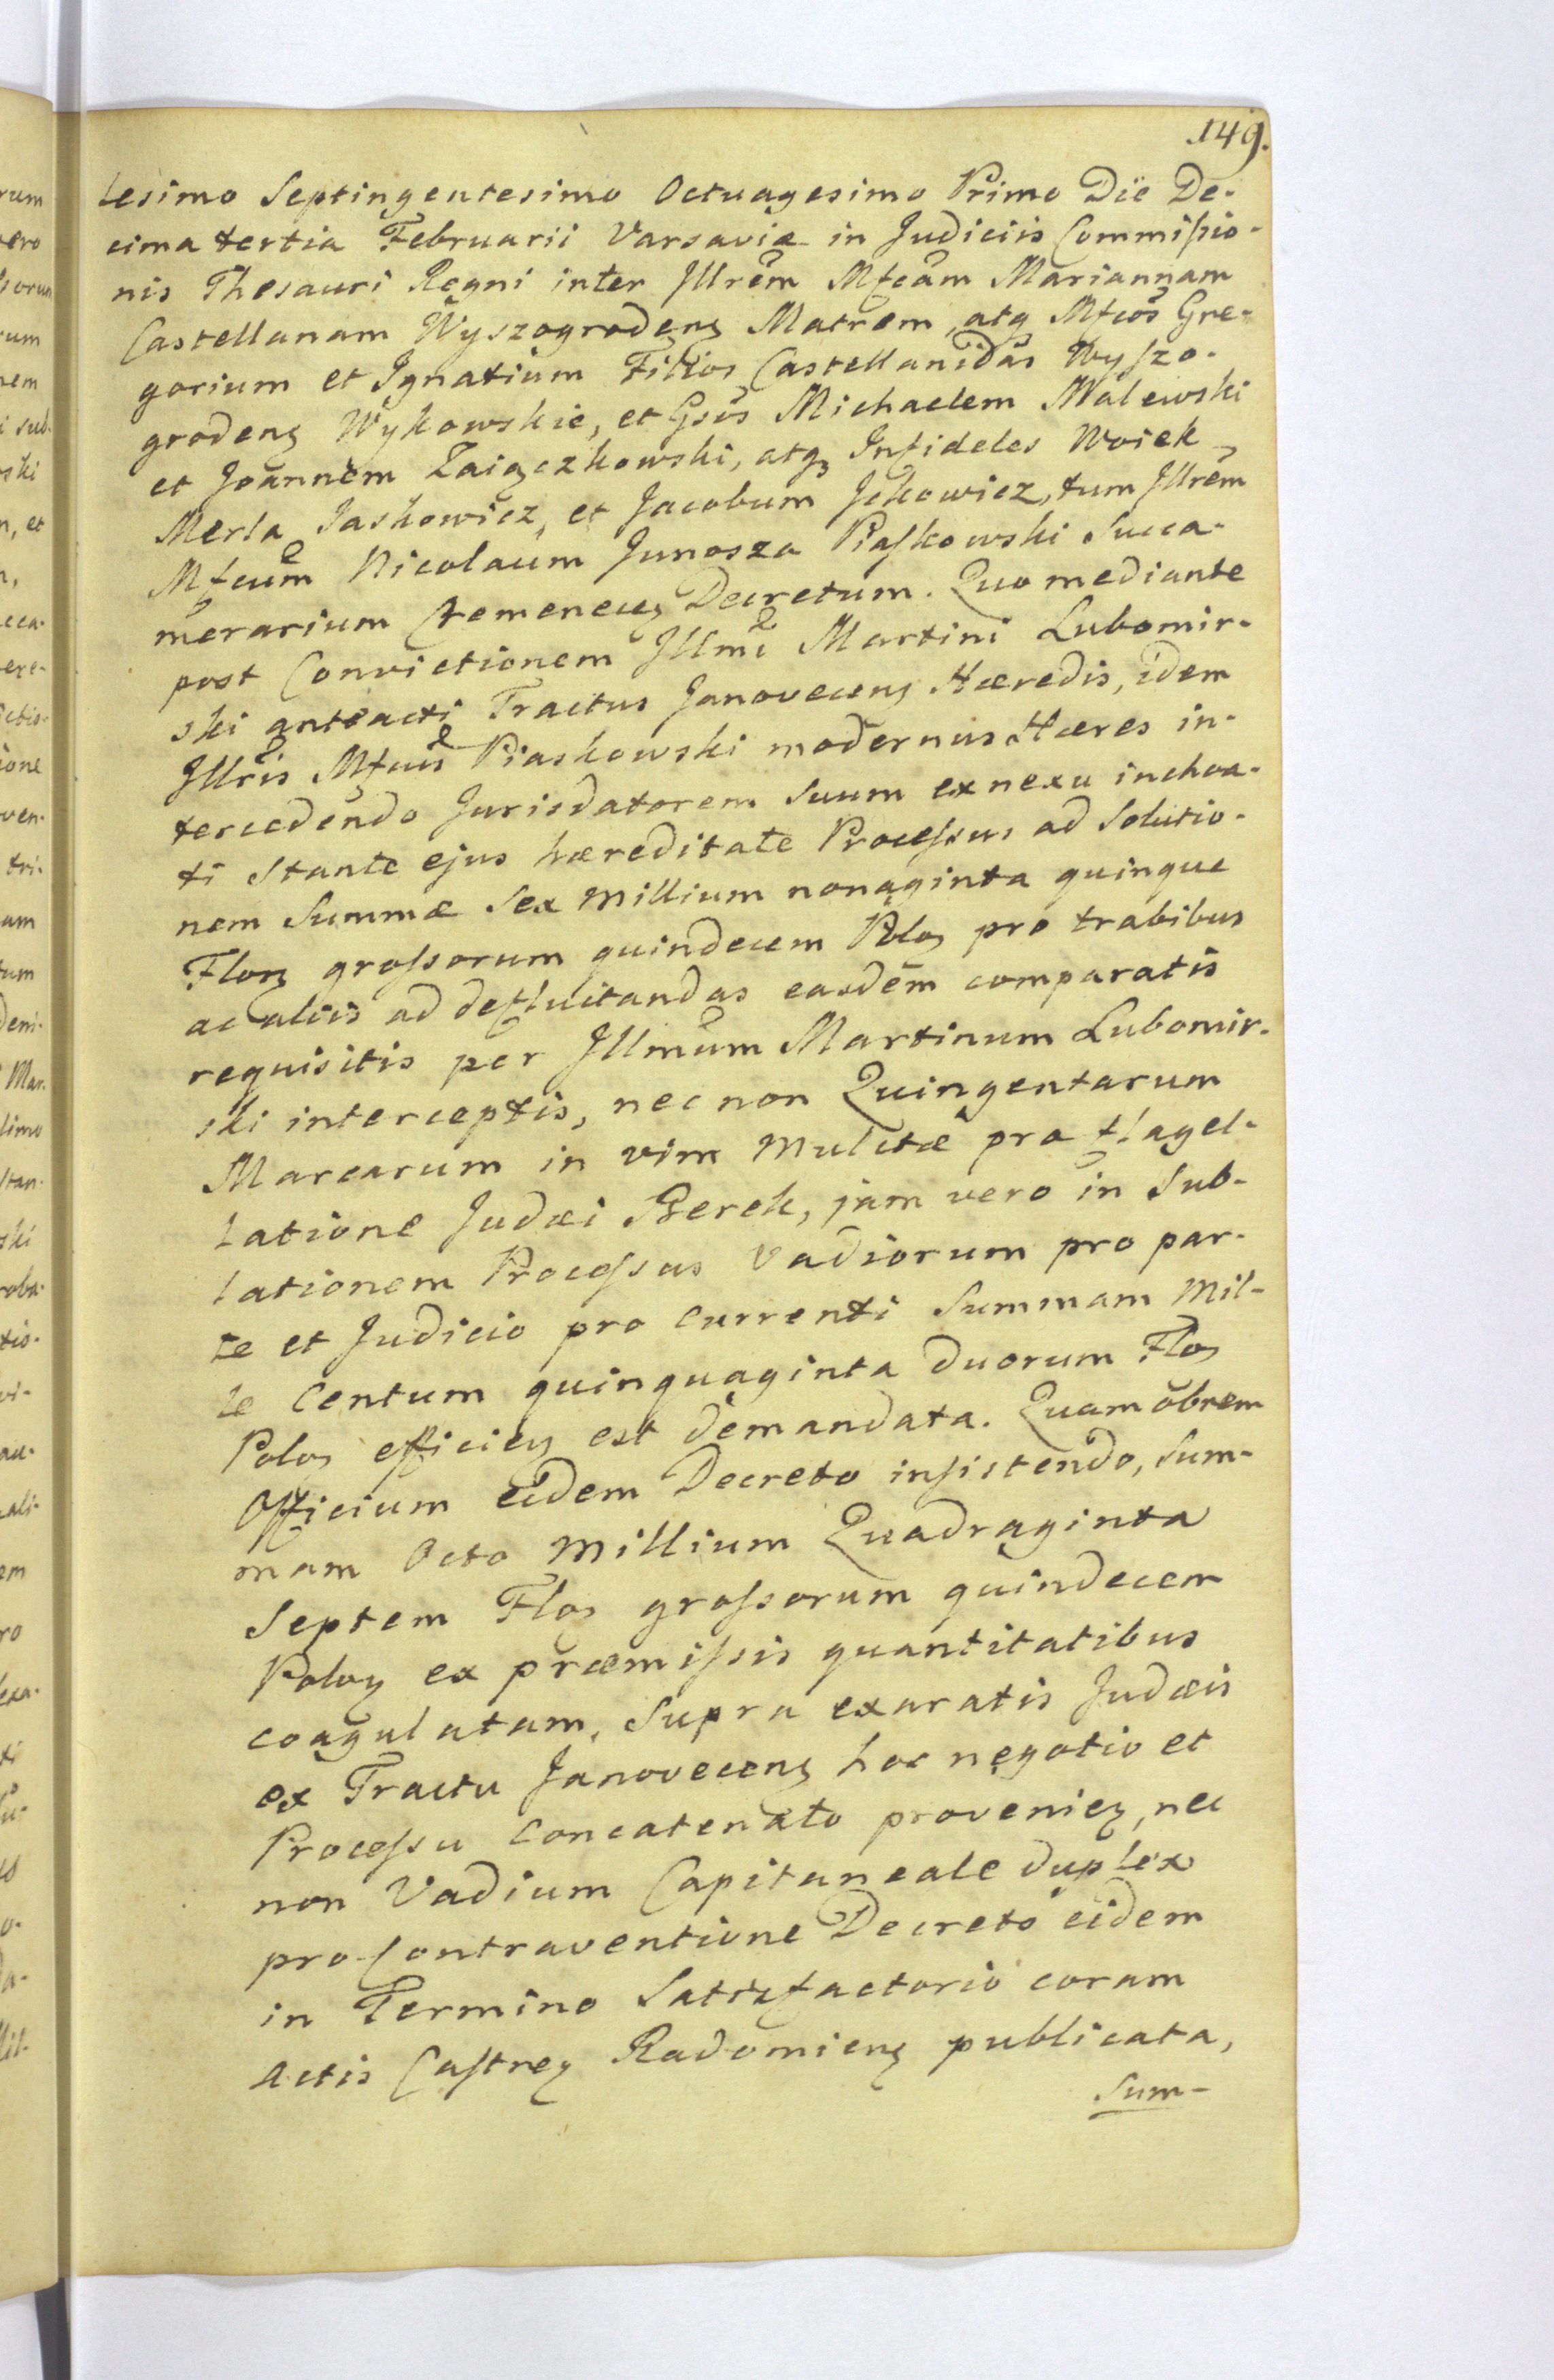 149.
lesimo Septingentesimo Octuagesimo Primo Die De-
cima tertia Februarii Varsaviæ in Judiciis Commissio-
nis Thesauri Regni inter Illrem Mfcam Mariannam
Castellanam Wyszogrodens Matrem, atq Mfcos Gre-
gorium et Ignatium Filios Castellanidas Wyszo-
grodens Wykowskie, et Gsos Michaelem Malewski
et Joannem Zaigczkowski, atq Infideles Woiek
Merla Jaskowicz, et Jacobum Jckowicz, tum Illrem
Mfcum Nicolaum Junosza Piaskowski Succa-
merarium Cremenecen Decretum. Quo mediante
post Convictionem Illmi Martini Lubomir-
ski anteacti Tractus Janovecens Hæredis, idem
Illris Mfcus Piaskowski modernus Hæres in-
tercedendo Jurisdatorem Suum ex nexu inchoa-
ti Stante ejus hæreditate Processus ad Solutio-
nem Summæ Sex Millium nonaginta quinque
Flor grossorum quindecem Pol pro trabibus
ac aliis ad defluitandas easdem comparatis
requisitis per Illmum Martinum Lubomir-
ski interceptis, nec non Quingentarum
Marcarum in vim Mulctæ pro flagel-
latione Judæi Berek, jam vero in Sub-
lationem Processus Vadiorum pro par-
te et Judicio pro currenti Summam Mil-
le Centum quinquaginta duorum Flo
Polo efficien est demandata. Quam obrem
Officium eidem Decreto insistendo, Sum-
mam Octo Millium Quadraginta
Septem Flo grossorum quindecem
Polo ex præmissis quantitatibus
coagulatam, Supra exaratis Judæis
ex Tractu Janovecens hoc negotio et
Processu Concatenato provenien, nec
non Vadium Capitaneale duplex
pro Contraventione Decreto eidem
in Termino Satisfactorio coram
Actis Castren Radomiens publicata,
Sum-